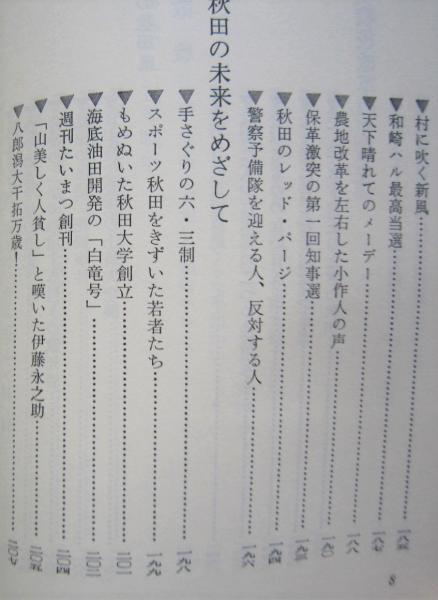 ▼村に吹く新風……一八五
▼和崎ハル最高当選……一八七
▼天下晴れてのメーデー……一八八
▼農地改革を左右した小作人の声……一九〇
▼保革激突の第一回知事選……一九三
▼秋田のレッド・パージ……一九四
▼警察予備隊を迎える人、反対する人……一九六
秋田の未来をめざして
▼手さぐりの六・三制……一九八
▼スポーツ秋田をきずいた若者たち……一九九
▼もめぬいた秋田大学創立……二〇一
▼海底油田開発の「白竜号」……二〇二
▼週刊たいまつ創刊……二〇四
▼「山美しく人貧し」と嘆いた伊藤永之助……二〇五
▼八郎潟大干拓万歳！……二〇七
8